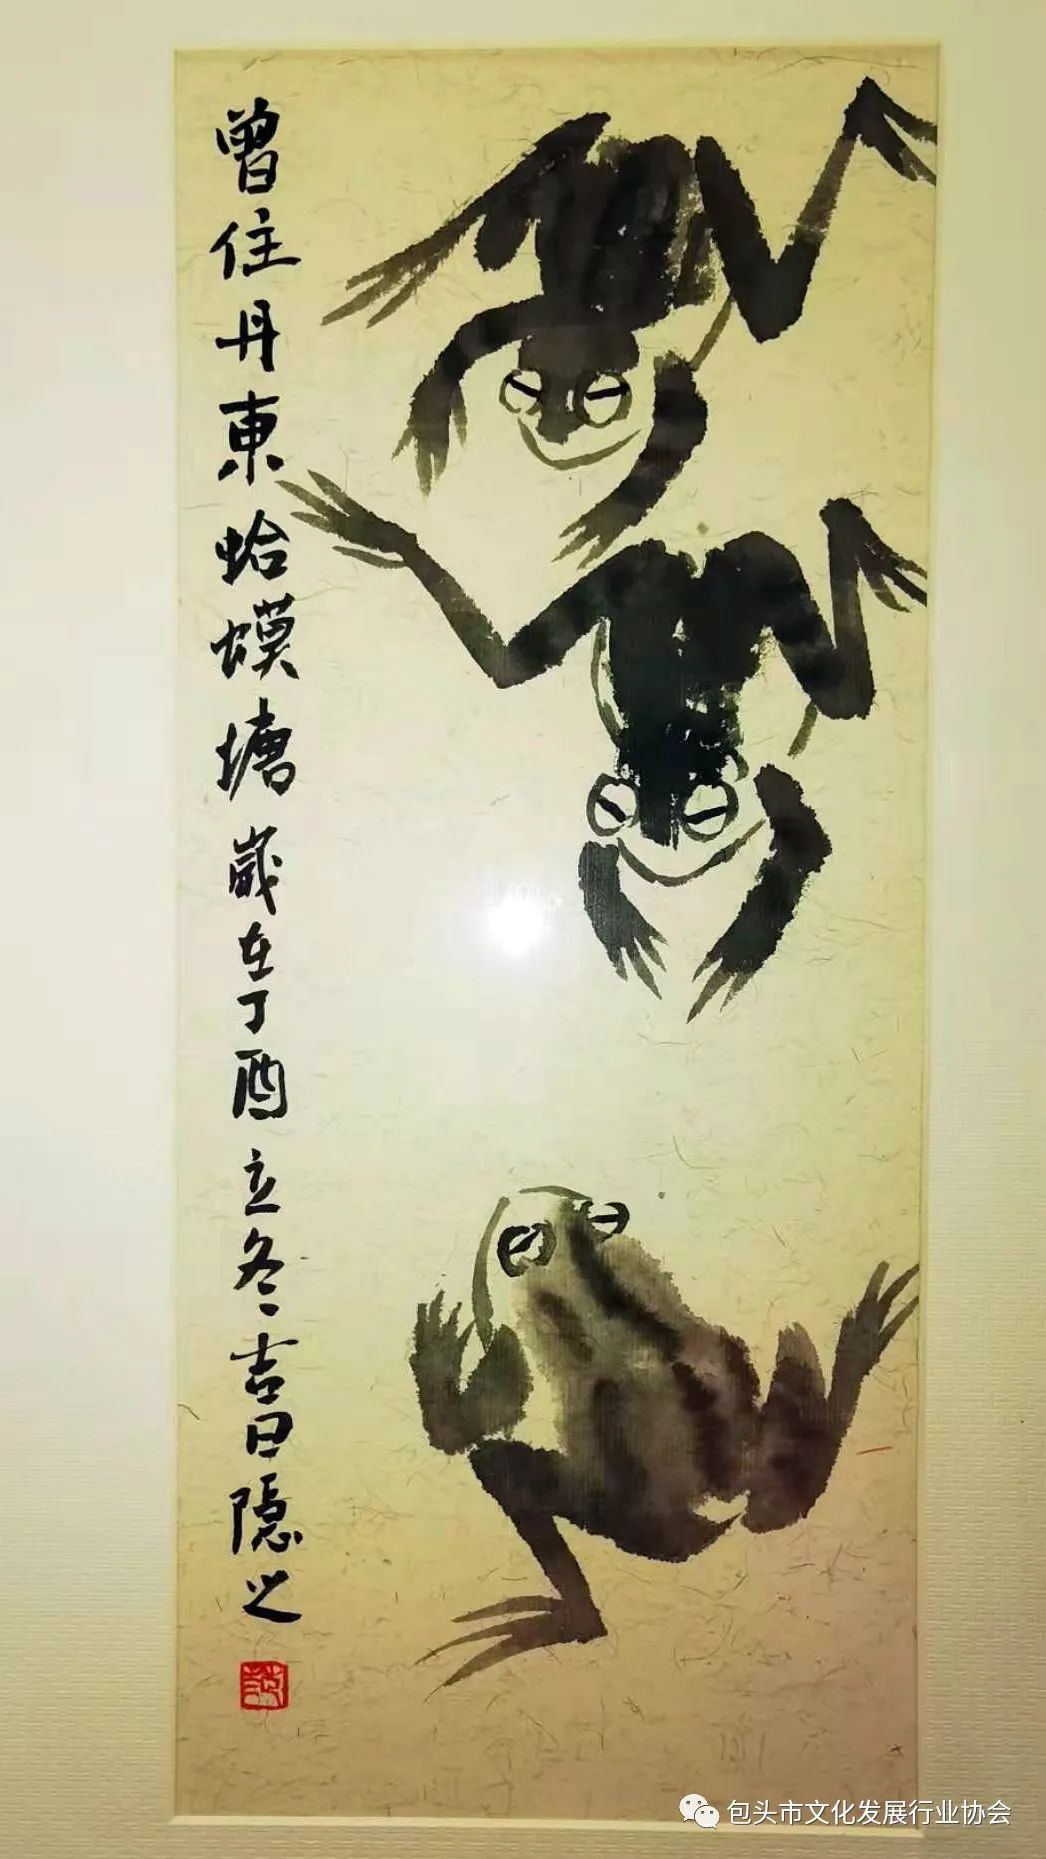 曾住丹東蛤蟆塘歲在丁酉立冬吉日隱之
包头市文化发展行业协会